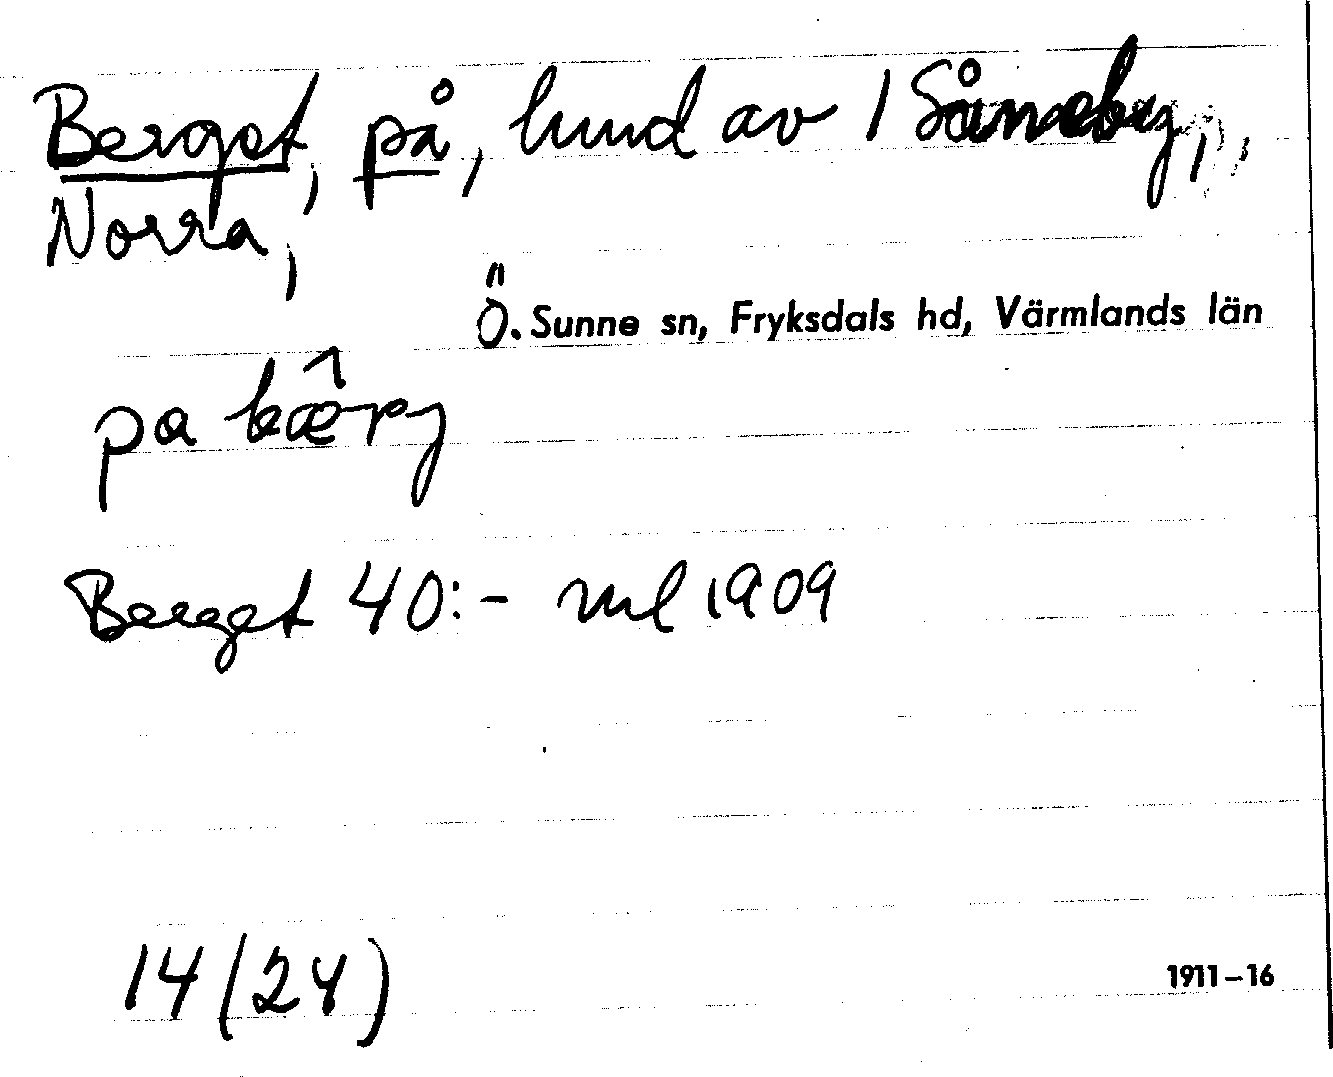 Berget, på, lund av 1 Såneby,
Norra,
Ö. Sunne sn, Fryksdals hd, Värmlands län
pa bæ̂rj
Berget 40:- ml 1909
14 (24)
1911–16